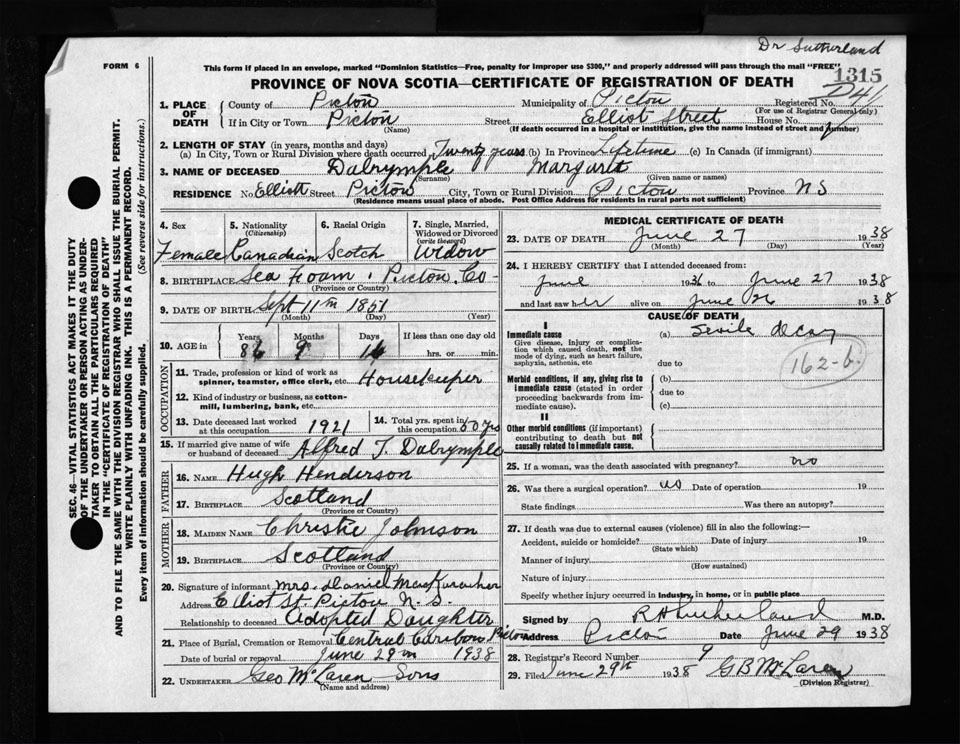 Dr Sutherland
FORM 6
This form if placed in an envelope, marked "Dominion Statistics—Free, penalty for improper use $300," and properly addressed will pass through the mail "FREE"
PROVINCE OF NOVA SCOTIA—CERTIFICATE OF REGISTRATION OF DEATH
1315
1. PLACE OF DEATH
County of Pictou Municipality of Pictou Registered No.
(For use of Registrar General only)
If in City or Town Pictou Street Elliot Street House No.
(Name) (If death occurred in a hospital or institution, give the name instead of street and number)
2. LENGTH OF STAY (in years, months and days)
(a) In City, Town or Rural Division where death occurred Twenty years (b) In Province Lifetime (c) In Canada (if immigrant)
3. NAME OF DECEASED Dalrymple Margaret
(Surname) (Given name or names)
RESIDENCE No. Elliott Street Pictou City, Town or Rural Division Pictou Province N S
(Residence means usual place of abode. Post Office Address for residents in rural parts not sufficient)
4. Sex
Female
5. Nationality
(Citizenship)
Canadian
6. Racial Origin
Scotch
7. Single, Married, Widowed or Divorced
(write the word)
Widow
8. BIRTHPLACE Sea Foam, Pictou Co
(Province or Country)
9. DATE OF BIRTH Sept 11th 1851
(Month) (Day) (Year)
10. AGE in
Years Months Days If less than one day old
86 9 16 hrs. or min.
OCCUPATION
11. Trade, profession or kind of work as spinner, teamster, office clerk, etc. Housekeeper
12. Kind of industry or business, as cotton-mill, lumbering, bank, etc.
13. Date deceased last worked at this occupation 1921
14. Total yrs. spent in this occupation 50 yrs
15. If married give name of wife or husband of deceased Alfred T. Dalrymple
FATHER
16. NAME Hugh Henderson
17. BIRTHPLACE Scotland
(Province or Country)
MOTHER
18. MAIDEN NAME Christie Johnson
19. BIRTHPLACE Scotland
(Province or Country)
20. Signature of informant Mrs. Daniel
Address Elliot St. Pictou N. S.
Relationship to deceased Adopted Daughter
21. Place of Burial, Cremation or Removal Central Caribou Pictou
Date of burial or removal June 29th 1938
22. UNDERTAKER Geo McLaren Sons
(Name and address)
MEDICAL CERTIFICATE OF DEATH
23. DATE OF DEATH June 27 1938
(Month) (Day) (Year)
24. I HEREBY CERTIFY that I attended deceased from:
June 1936 to June 27 1938
and last saw her alive on June 26 1938
CAUSE OF DEATH
I
Immediate cause (a) Senile decay
Give disease, injury or complication which caused death, not the mode of dying, such as heart failure, asphyxia, asthenia, etc.
due to
162-b.
Morbid conditions, if any, giving rise to immediate cause (stated in order proceeding backwards from immediate cause).
(b)
due to
(c)
II
Other morbid conditions (if important) contributing to death but not causally related to immediate cause.
25. If a woman, was the death associated with pregnancy? no
26. Was there a surgical operation? no Date of operation 19
State findings Was there an autopsy?
27. If death was due to external causes (violence) fill in also the following:—
Accident, suicide or homicide? Date of injury 19
(State which)
Manner of injury
(How sustained)
Nature of injury
Specify whether injury occurred in industry, in home, or in public place
Signed by R H Sutherland M.D.
Address Pictou Date June 29 1938
28. Registrar's Record Number 9
29. Filed June 29th 1938 G B McLaren
(Division Registrar)
SEC. 46—VITAL STATISTICS ACT MAKES IT THE DUTY OF THE UNDERTAKER OR PERSON ACTING AS UNDERTAKER TO OBTAIN ALL THE PARTICULARS REQUIRED IN THE "CERTIFICATE OF REGISTRATION OF DEATH" AND TO FILE THE SAME WITH THE DIVISION REGISTRAR WHO SHALL ISSUE THE BURIAL PERMIT.
WRITE PLAINLY WITH UNFADING INK. THIS IS A PERMANENT RECORD.
Every item of information should be carefully supplied. (See reverse side for instructions.)